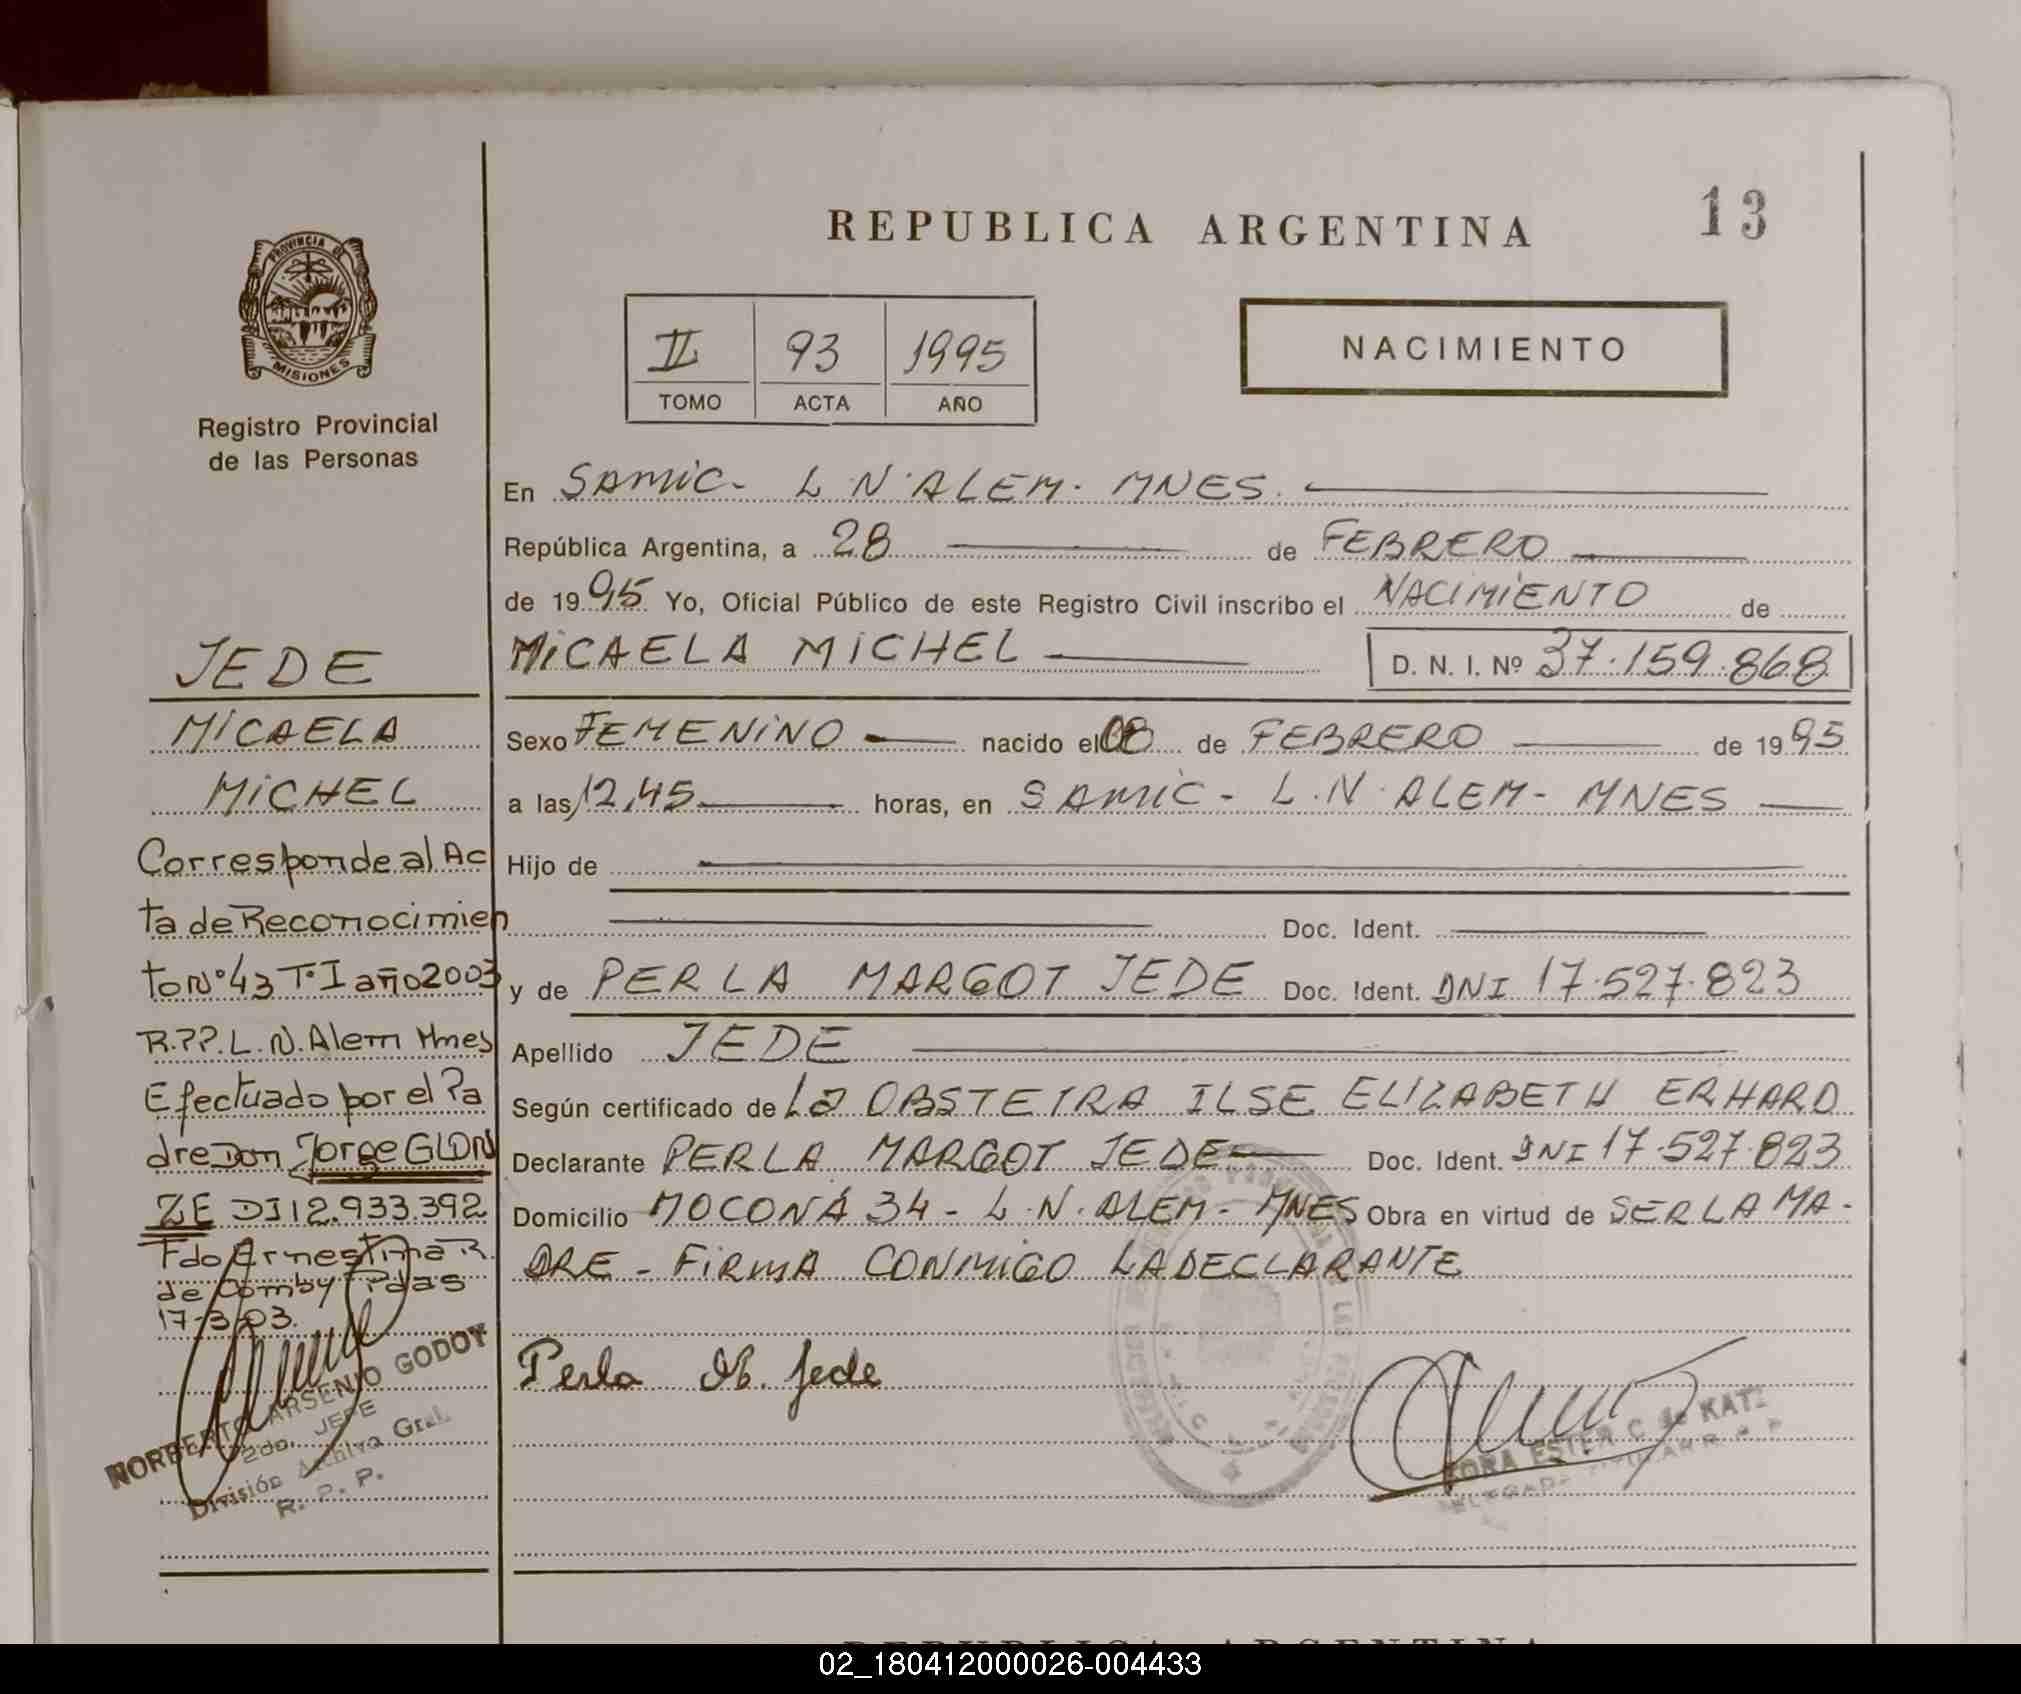 REPUBLICA ARGENTINA
13
PROVINCIA DE
MISIONES
Registro Provincial
de las Personas
II 93 1995
TOMO ACTA AÑO
NACIMIENTO
En SAMIC- L N ALEM- MNES.
República Argentina, a 28 de FEBRERO
de 1995 Yo, Oficial Público de este Registro Civil inscribo el NACIMIENTO de
MICAELA MICHEL D. N. I. Nº 37.159.868
Sexo FEMENINO nacido el 08 de FEBRERO de 1995
a las 12,45 horas, en SAMIC- L.N. ALEM- MNES
Hijo de
Doc. Ident.
y de PERLA MARGOT JEDE Doc. Ident. DNI 17.527.823
Apellido JEDE
Según certificado de La OBSTETRA ILSE ELIZABETH ERHARD
Declarante PERLA MARGOT JEDE Doc. Ident. DNI 17.527.823
Domicilio MOCONÁ 34- L.N. ALEM- MNES Obra en virtud de SER LA MA-
DRE- FIRMA CONMIGO LA DECLARANTE
Perla M. Jede
ESTER C de KATZ
JEDE
MICAELA
MICHEL
Corresponde al Ac
ta de Reconocimien
to Nº 43 Tº I año 2003
R.P.P. L.N. Alem Mnes
Efectuado por el Pa
dre Don Jorge GLON
ZE DI 12.933.392
Fdo Ernestina R.
de Comby Pdas
17-3-03.
NORBERTO ARSENIO GODOY
2do. JEFE
División Archivo Gral.
R. P. P.
REPUBLICA ARGENTINA
02_180412000026-004433